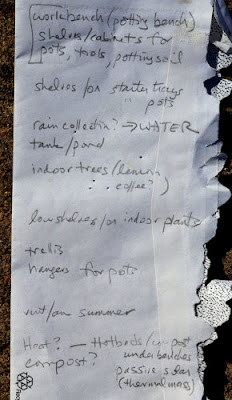 workbench (potting bench)
shelves/cabinets for
pots, tools, potting soil
shelves/ for starter trays
" pots
rain collection? → WATER
tank/pond
indoor trees (lemon,
coffee?)
low shelves/ for indoor plants
trellis
hangers for pots
vent/ summer
Heat? — Hotbeds/compost
under benches
compost?
passive solar
(thermal mass)